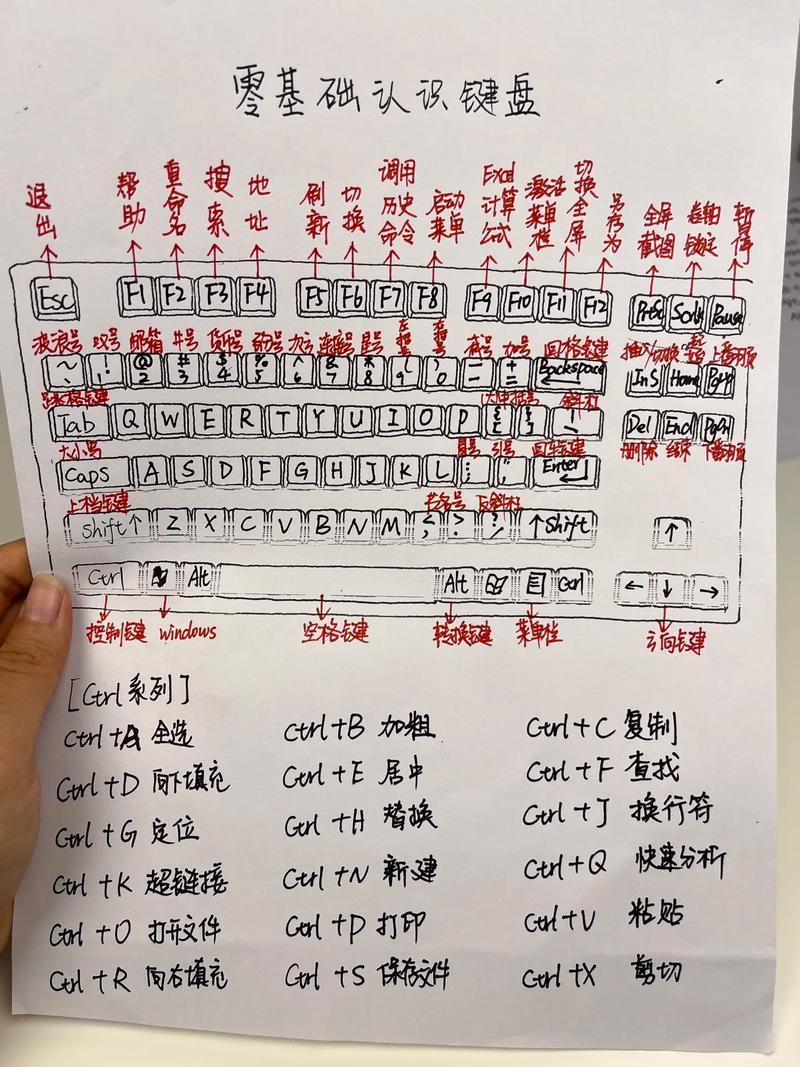 零基础认识键盘
退出 帮助 重命名 搜索 地址 刷新 切换 调用历史命令 启动菜单 Excel计算公式 激活菜单栏 切换全屏 另存为 全屏截图 卷轴锁定 暂停
Esc F1 F2 F3 F4 F5 F6 F7 F8 F9 F10 F11 F12 PrtSc Scrlk Pause
波浪号 叹号 邮箱 井号 货币号 次方 连接号 星号 左括号 右括号 减号 加号 回格键 插入/切换 上翻页
~ ` ! @ 2 # 3 $ 4 % 5 ^ 6 & 7 * 8 ( 9 ) 0 - + = Backspace InS Home PgUp
跳格键 大中括号 斜杠
Tab Q W E R T Y U I O P { [ } ] Del End PgDn
大小写 冒号 引号 回车键 删除 结束 下翻页
Caps A S D F G H J K L : ; " ' Enter
上档键 书名号 反斜杠
Shift↑ Z X C V B N M < , > . ? / ↑Shift ↑
Ctrl Alt Alt Ctrl ← ↓ →
控制键 windows 空格键 转换键 菜单栏 方向键
[Ctrl系列]
Ctrl+A 全选 Ctrl+B 加粗 Ctrl+C 复制
Ctrl+D 向下填充 Ctrl+E 居中 Ctrl+F 查找
Ctrl+G 定位 Ctrl+H 替换 Ctrl+J 换行符
Ctrl+K 超链接 Ctrl+N 新建 Ctrl+Q 快速分析
Ctrl+O 打开文件 Ctrl+P 打印 Ctrl+V 粘贴
Ctrl+R 向右填充 Ctrl+S 保存文件 Ctrl+X 剪切